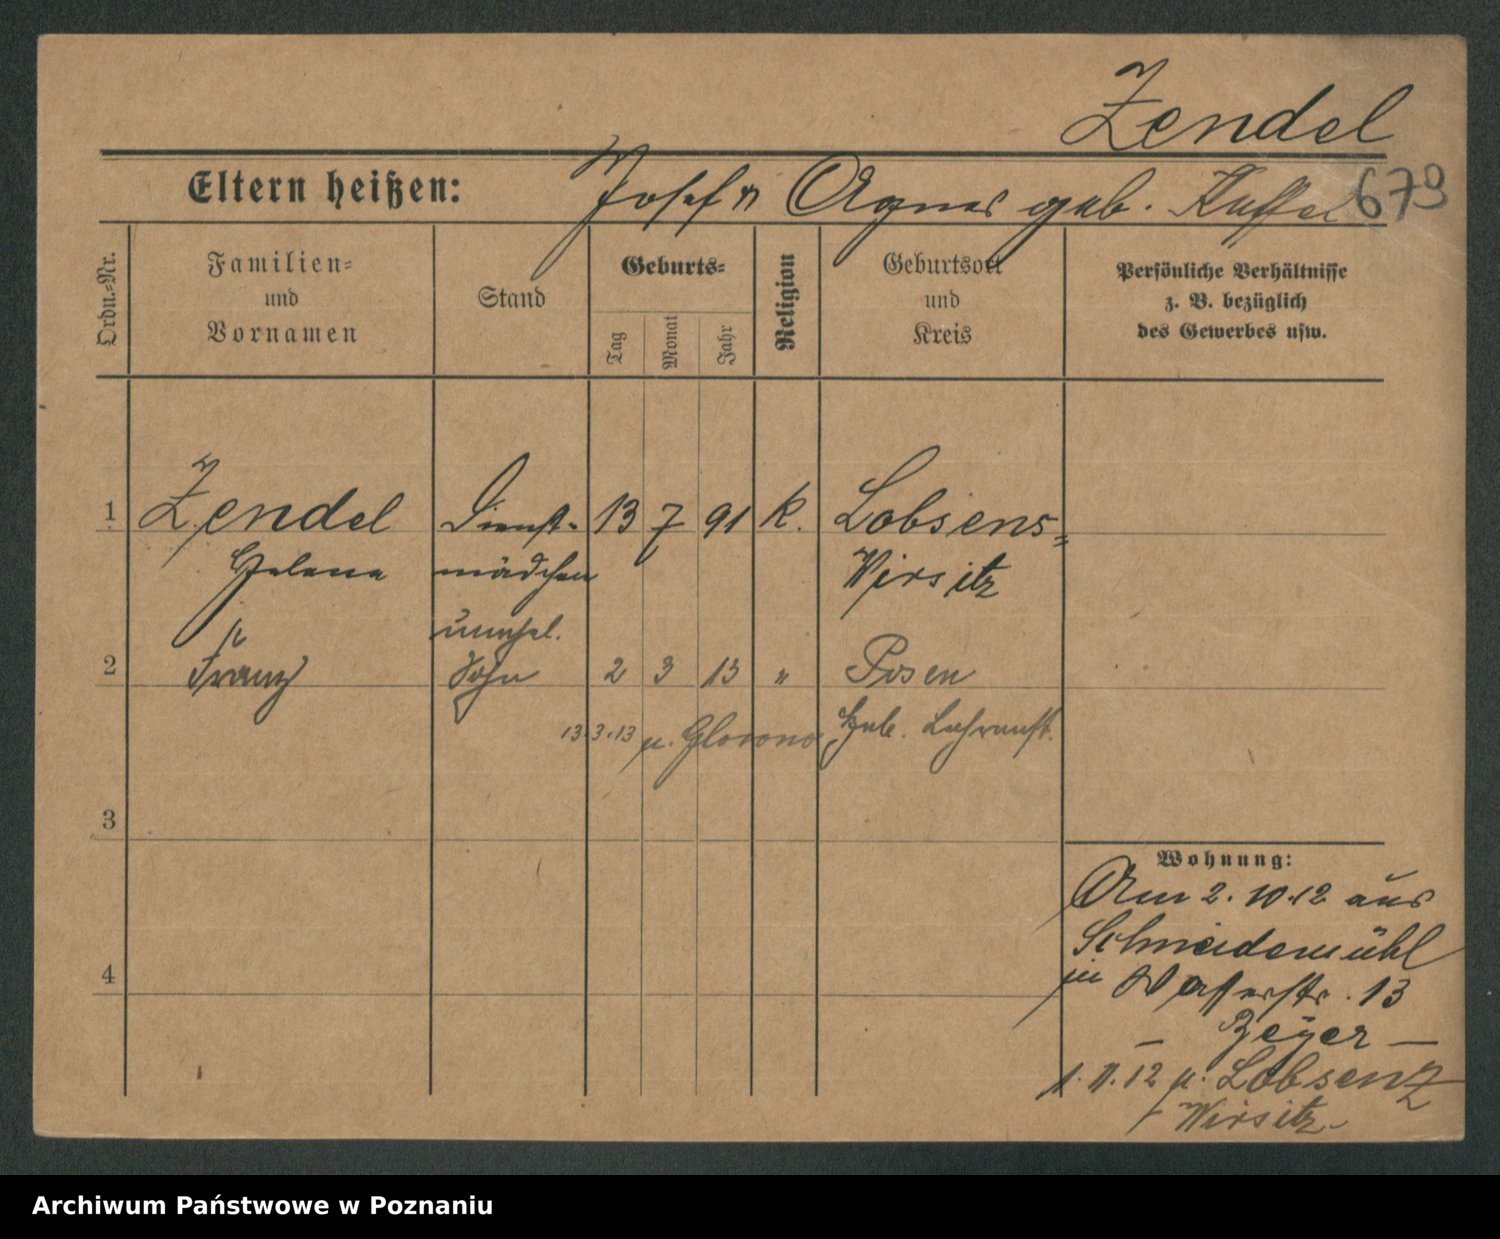 Zendel
Eltern heißen: Josef u Agnes geb. Kuffel 679
Ordn.-Nr.
Familien-
und
Vornamen
Stand
Geburts-
Tag
Monat
Jahr
Religion
Geburtsort
und
Kreis
Persönliche Verhältnisse
z. B. bezüglich
des Gewerbes usw.
1 Zendel Dienst- 13 7 91 k. Lobsens-
Helene mädchen Wirsitz
unehel.
2 Franz Sohn 2 3 13 " Posen
13.3.13 n. Glowno Heb. Lehranst.
3
Wohnung:
Am 2.10.12 aus
Schneidemühl
in Wasserstr. 13
4
— Beyer —
1.11.12 n. Lobsenz
Wirsitz
Archiwum Państwowe w Poznaniu